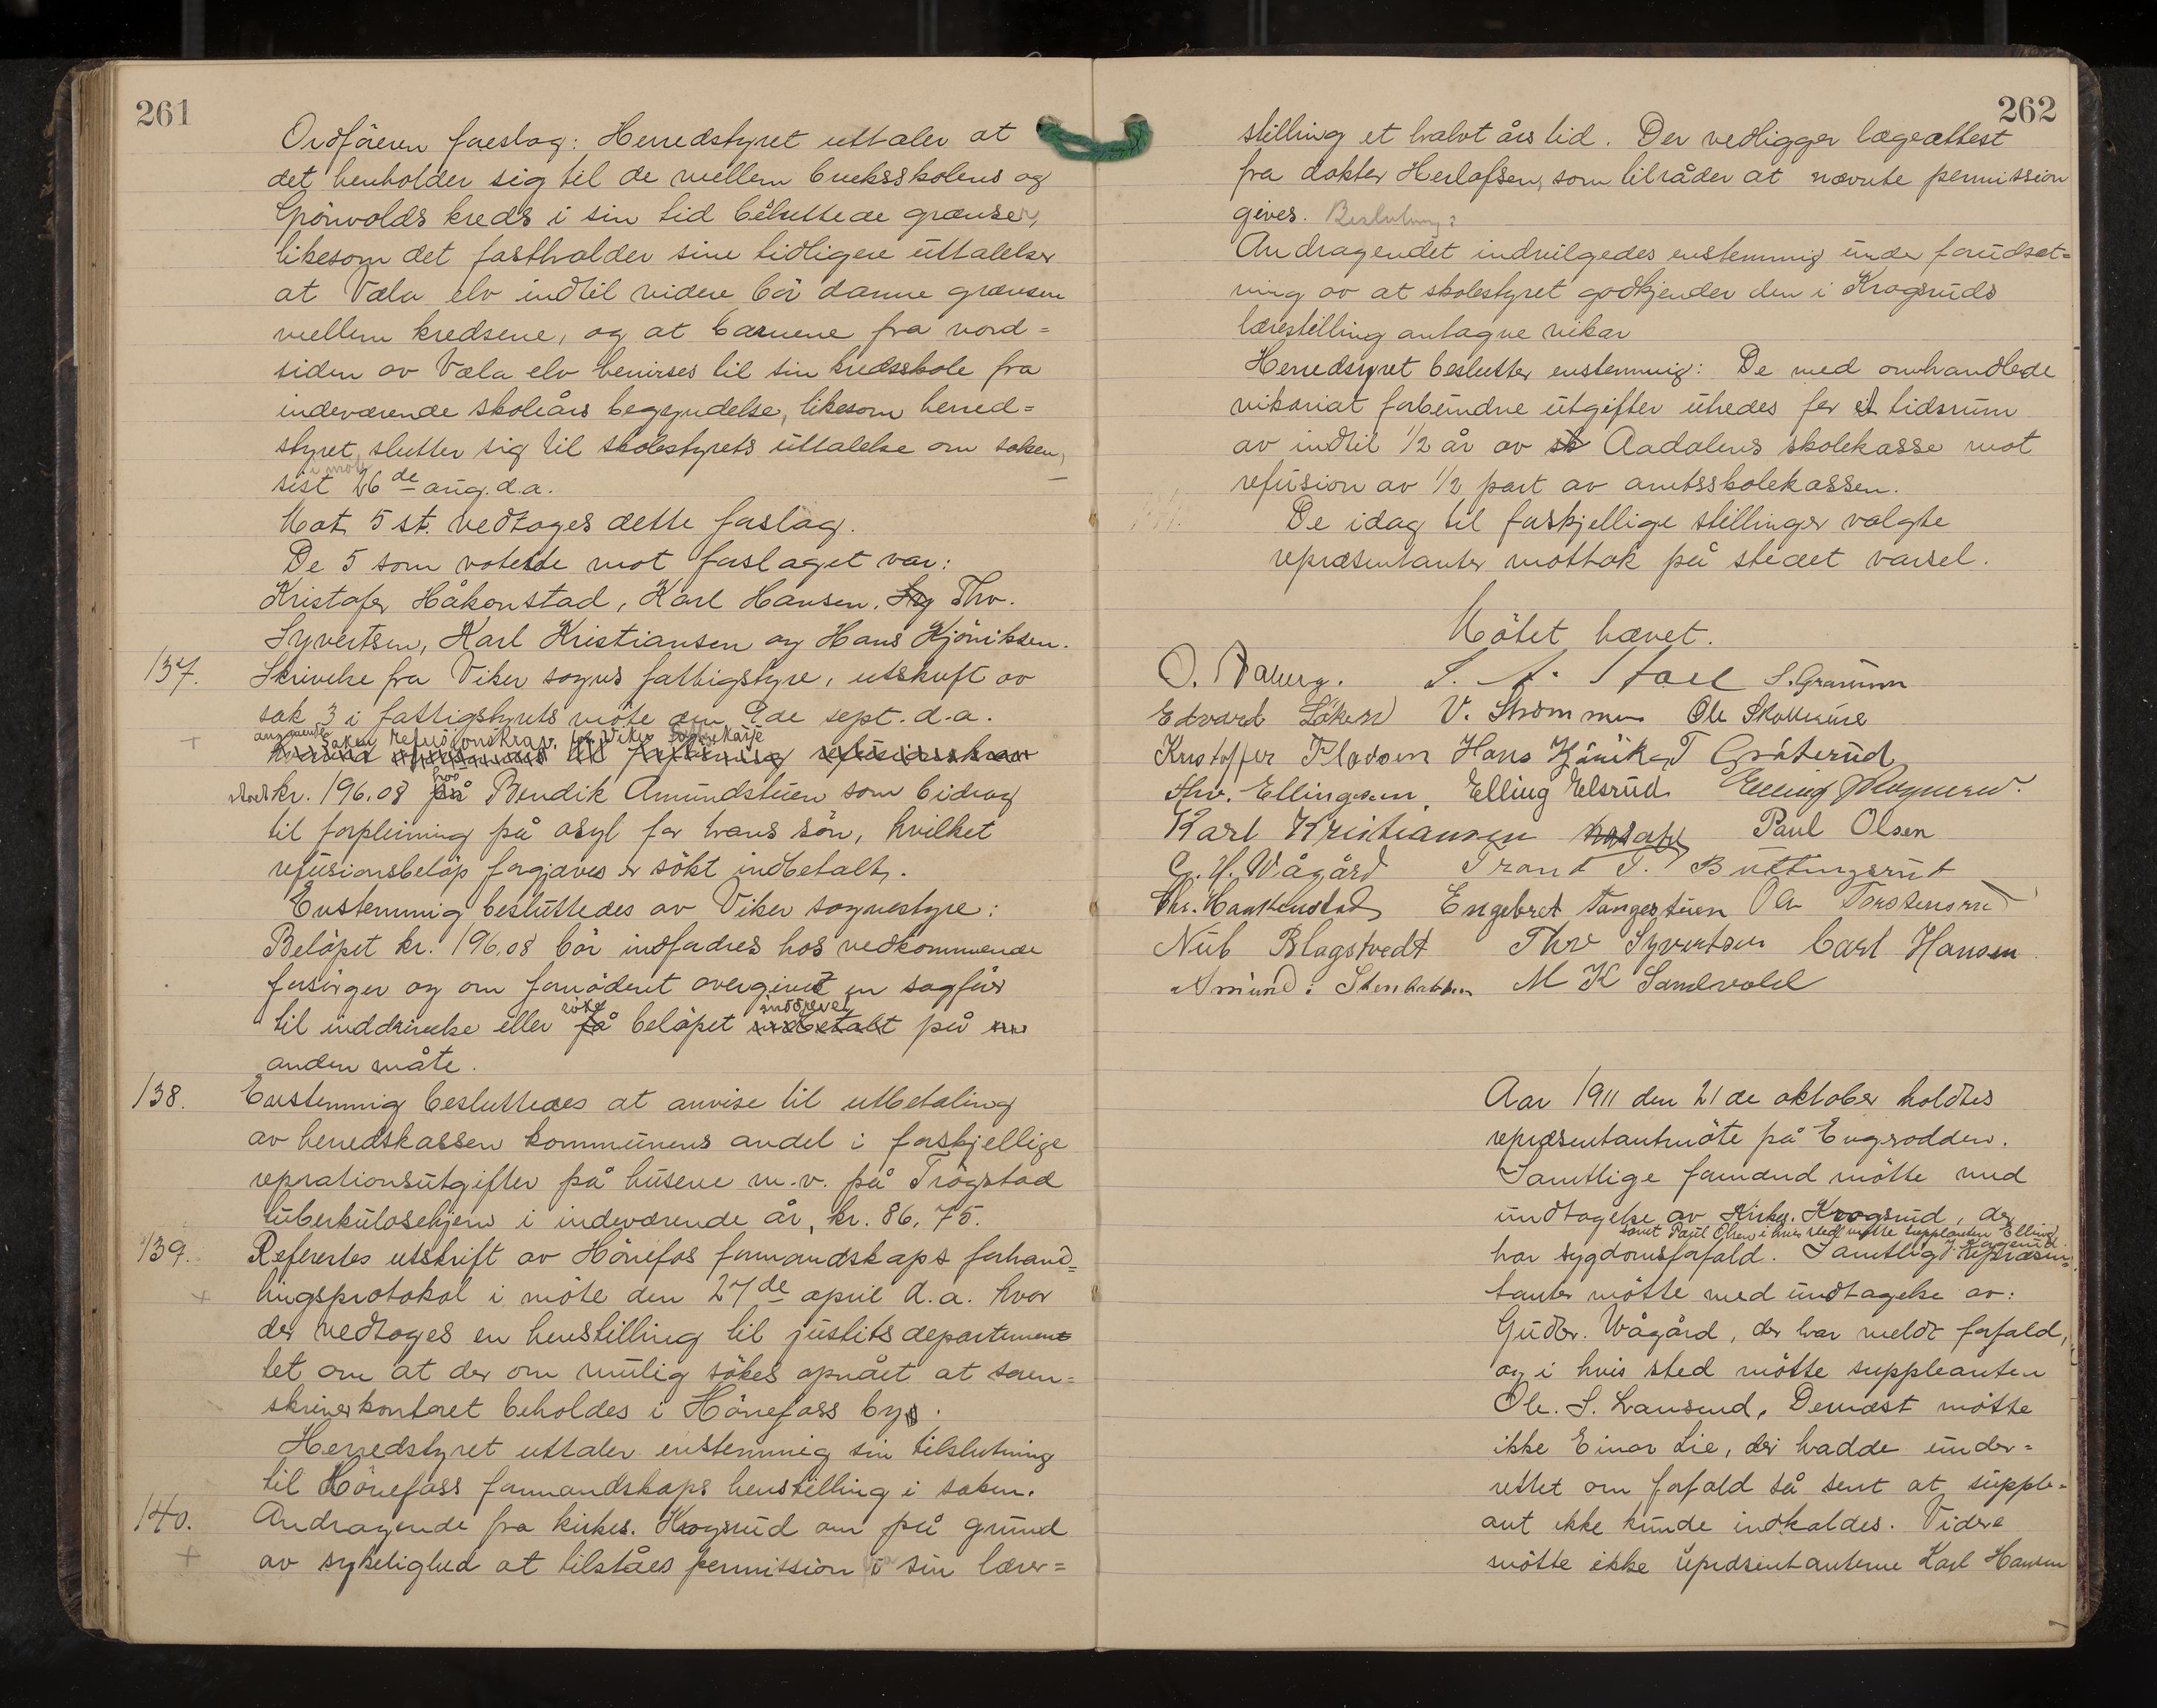 261
Ordföreren foreslog: Herredstyret uttaler at
det henholder sig til de mellem bruksskolens og
Grönvolds kreds i sin tid besluttede grænser,
likesom det fastholder sine tidligere uttalelser
at Væla elv indtil videre bör danne grænsen
mellem kredsene, og at barnene fra nord=
siden av Væla elv henvises til sin kredsskole fra
indeværende skoleårs begyndelse, likesom herred=
styret slutter sig til skolestyrets uttalelse om saken,
i möte
sist 26de aug. d.a.
Mot 5 st. vedtoges dette forslag.
De 5 som voterte mot forslaget var:
Kristofer Håkonstad, Karl Hansen, Thv.
Syvertsen, Karl Kristiansen og Hans Kjöniksen.
137. Skrivelse fra Viker sogns fattigstyre, utskrift av
sak 3 i fattigstyrets möte den 9de sept. d.a.
angaaende saken refusjonskrav for Viker fattigkasse
+
stort kr. 196.08 hos Bendik Amundstuen som bidrag
til forpleining på asyl for hans sön, hvilket
refusionsbelöp forgjæves er sökt indbetalt.
Enstemmig besluttedes av Viker sognestyre:
Belöpet kr. 196,08 bör indfordres hos vedkommende
forsörger og om fornödent overgives en sagförer
til inddrivelse eller sökt belöpet inddrevet på
anden måte.
138. Enstemmig besluttedes at anvise til utbetaling
av herredskassen kommunens andel i forskjellige
reprationsutgifter på husene m.v. på Trögstad
tuberkulosehjem i indeværende år, kr. 86,75.
139. Referertes utskrift av Hönefos formandskaps forhand=
+ lingsprotokol i möte den 27de april d.a. hvor
der vedtoges en henstilling til justitsdepartemen
tet om at der om mulig sökes opnået at soren=
skriverkontoret beholdes i Hönefoss by.
Herredstyret uttaler enstemmig sin tilslutning
til Hönefoss formandskaps henstilling i saken.
140. Andragende fra kirkes. Krogsrud om på grund
+ av sykelighed at tilståes permission i sin lærer=
262
stilling et halvt års tid. Der vedligger lægeattest
fra dokter Herlofsen, som tilråder at nævnte permission
gives. Beslutning:
Andragendet indvilgedes enstemmig under forudsæt=
ning av at skolestyret godkjender den i Krogsruds
lærestilling antagne vikar
Herredsyret beslutter enstemmig: De med omhandlede
vikariat forbundne utgifter utredes for et tidsrum
av indtil 1/2 år av Aadalens skolekasse mot
refusion av 1/2 part av amtsskolekassen.
De idag til forskjellige stillinger valgte
repræsentanter mottok på stedet varsel.
Mötet hævet.
S. Granum
Edvard Löken V. Strömmen Ole
Kristoffer Hans T Gråterud
Thv. Ellingsen, Elling Elsrud
Karl Kristiansen Paul Olsen
G. H. Wågård Trond T. Buttingsrud
Engebret Tangestuen Ole
Nub Blagstvedt Thv Syvertsen Carl Hansen
M K Sandvold
Aar 1911 den 21de oktober holdtes
repræsentantmöte på Engsrodden.
Samtlige formænd mötte med
undtagelse av Kirkes. Krogsrud, der
samt Paul Olsen i hvis sted mötte suppleanten Elling
har sygdomsforfald. Samtlig repræsen=
tanter mötte med undtagelse av:
Gudbr. Wågård, der har meldt forfald,
og i hvis sted mötte suppleanten
Ole. S. Lansrud, Dernæst mötte
ikke Einar Lie, der hadde under=
rettet om forfald så sent at supple=
ant ikke kunde indkaldes. Videre
mötte ikke repræsentanterne Karl Hansen